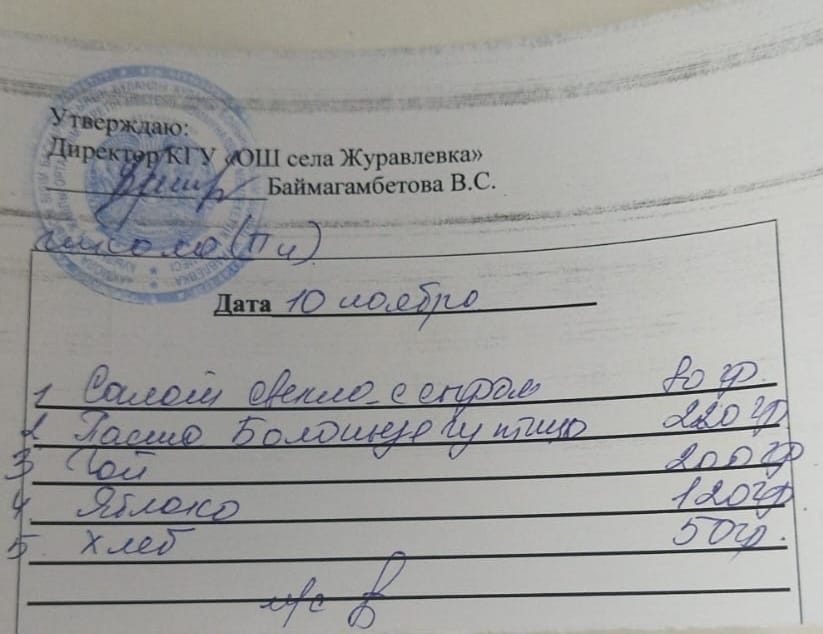 Утверждаю:
Директор КГУ «ОШ села Журавлевка»
Баймагамбетова В.С.
школа (Пн)
Дата 10 ноября
1 Салат свекла с сыром 80 гр.
2 Паста Болоньезе гр птицы 220 гр
3 Чай 200 гр
4 Яблоко 120 гр
5 Хлеб 50 гр.
м/с